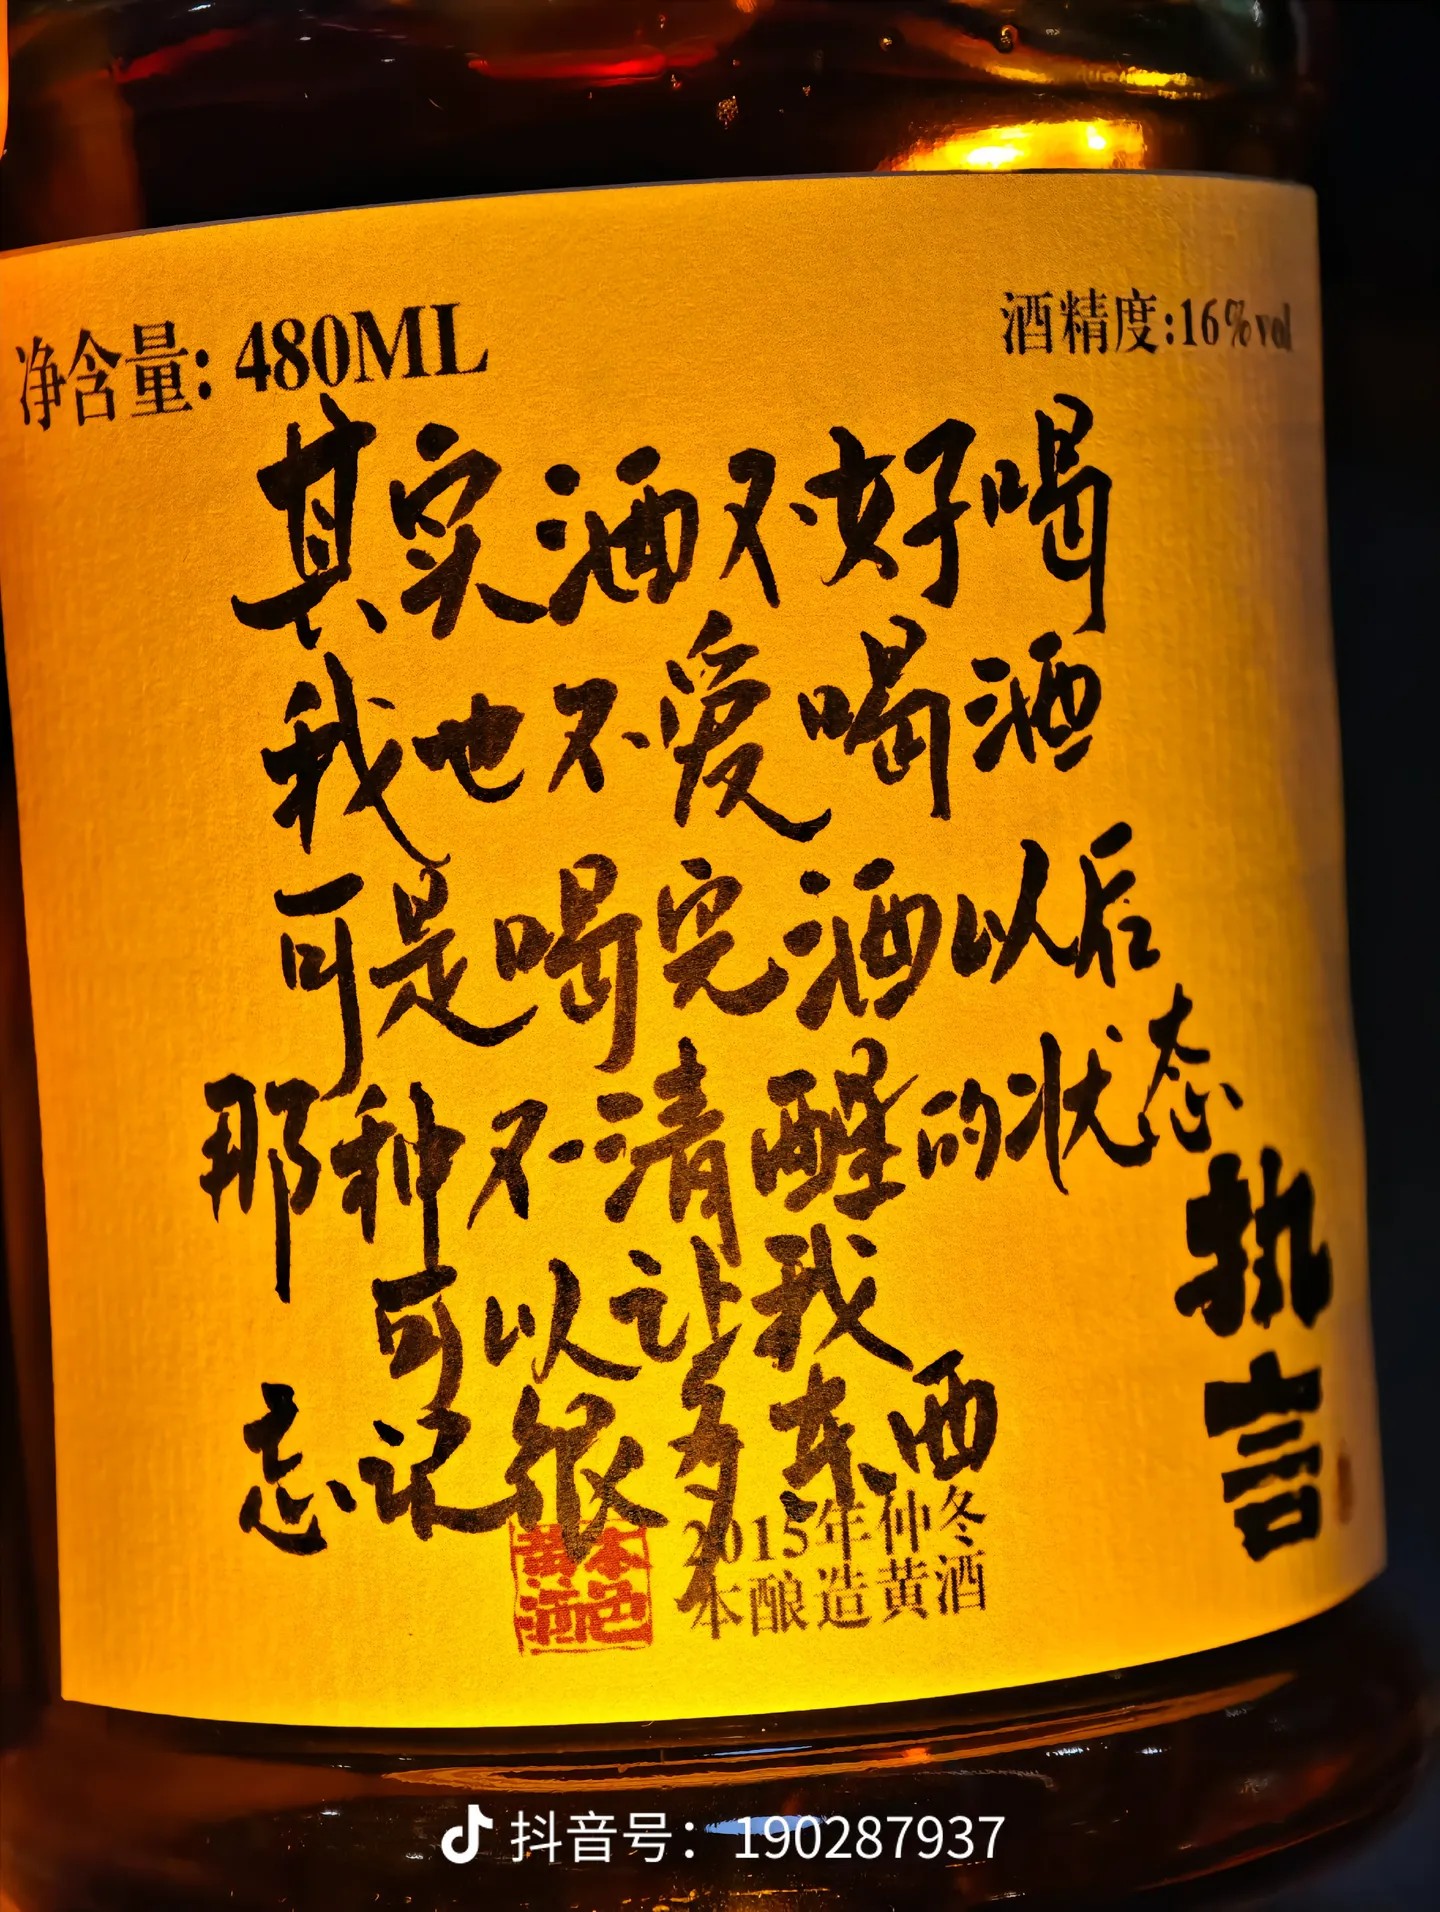 净含量: 480ML
酒精度:16%vol
其实酒不好喝
我也不爱喝酒
可是喝完酒以后
那种不清醒的状态
可以让我
忘记很多东西
执言
本色黄酒
2015年仲冬
本酿造黄酒
抖音号：190287937